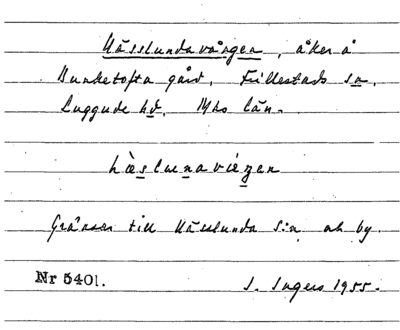 Hässlundavången, åker å
Dunketofta gård, Fillestads sn,
Luggude hd. Mhs län.
hæsluna viéŋen
Gränsar till Hässlunda s:n och by.
Nr 5401. I. Ingers 1955.